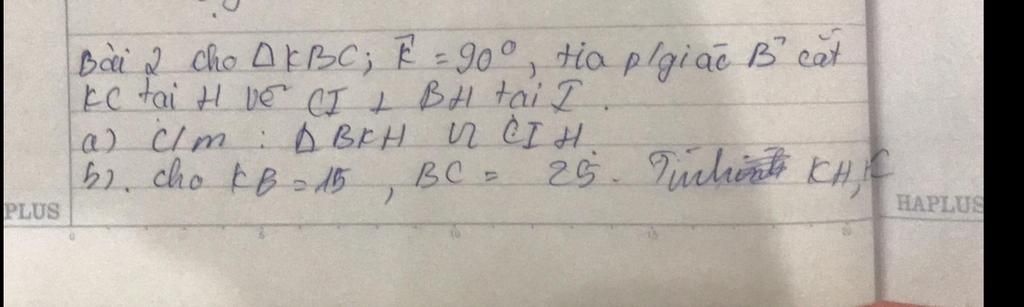 Bài 2 cho ΔKBC; K̂ = 90°, tia p/giác B̂ cắt
KC tại H vẽ CI ⊥ BH tại I.
a) C/m : Δ BKH ∽ CIH
b). cho KB = 15, BC = 25. Tính KH,
PLUS
HAPLUS
0 5 10 15 20